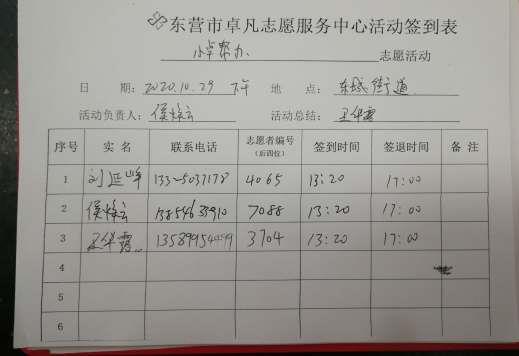 东营市卓凡志愿服务中心活动签到表
志愿活动
日 期: 2020.10.29 下午 地 点: 东城街道
活动负责人: 侯焕云 活动总结: 王华露
序号 实名 联系电话 志愿者编号 (后四位) 签到时间 签退时间 备注
1 刘延峰 4065 13:20 17:00
2 侯焕云 7088 13:20 17:00
3 王华露 3704 13:20 17:00
4
5
6